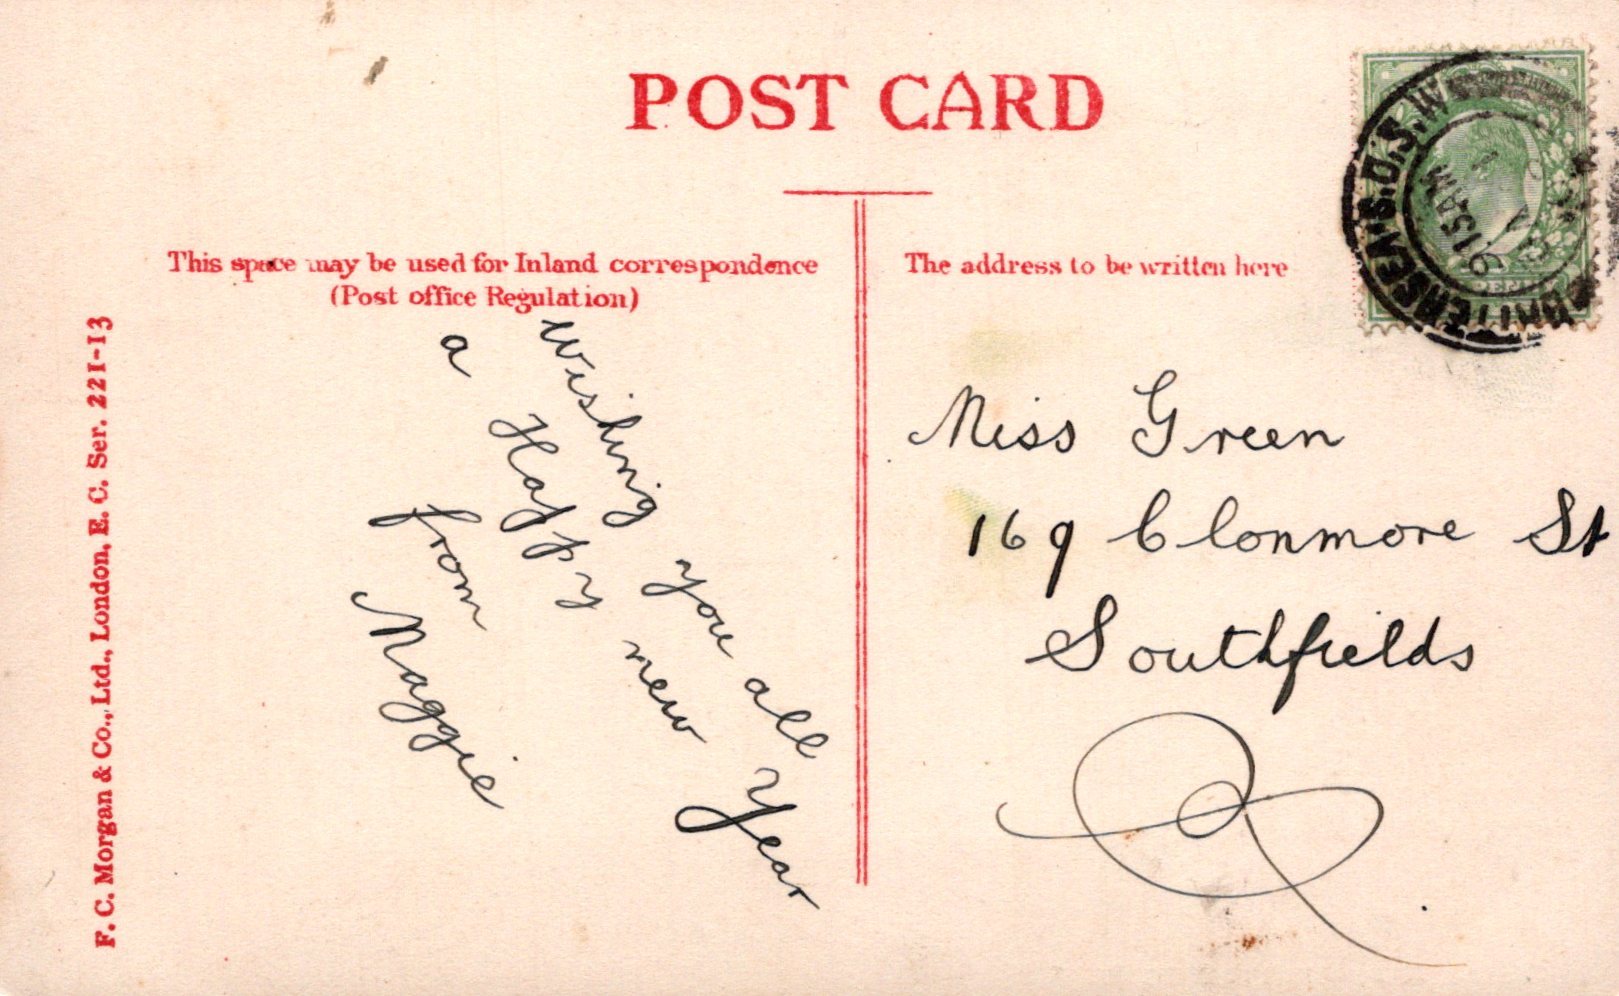 POST CARD
This space may be used for Inland correspondence
(Post office Regulation)
The address to be written here
Wishing you all
a Happy new Year
from
Maggie
Miss Green
169 Clonmore St
Southfields
F. C. Morgan & Co., Ltd., London, E. C. Ser. 221-13
BATTERSEA.S.O.S.W
915AM